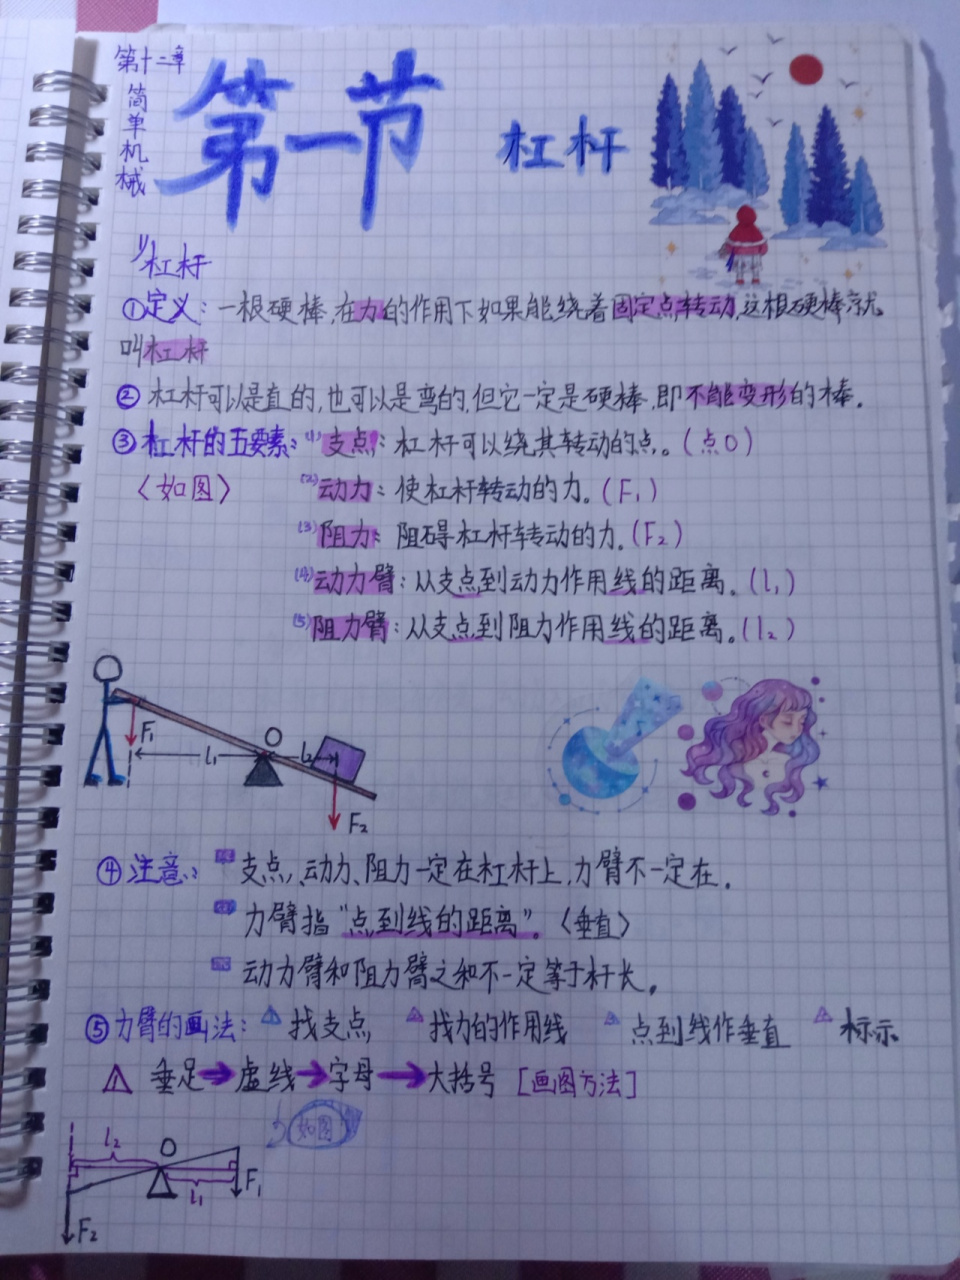 第十二章
简单机械
第一节 杠杆
1/杠杆
①定义:一根硬棒,在力的作用下如果能绕着固定点转动,这根硬棒就
叫杠杆
② 杠杆可以是直的,也可以是弯的,但它一定是硬棒,即不能变形的棒.
③杠杆的五要素:(1)支点:杠杆可以绕其转动的点。(点O)
〈如图〉 (2)动力:使杠杆转动的力.(F₁)
(3)阻力:阻碍杠杆转动的力.(F₂)
(4)动力臂:从支点到动力作用线的距离.(l₁)
(5)阻力臂:从支点到阻力作用线的距离.(l₂)
F₁ l₁ O l₂ F₂
④注意: 支点、动力、阻力一定在杠杆上,力臂不一定在.
力臂指“点到线的距离”.〈垂直〉
动力臂和阻力臂之和不一定等于杆长.
⑤力臂的画法: 找支点 找力的作用线 点到线作垂直 标示
垂足→虚线→字母→大括号[画图方法]
如图
l₂ O l₁ F₁
F₂